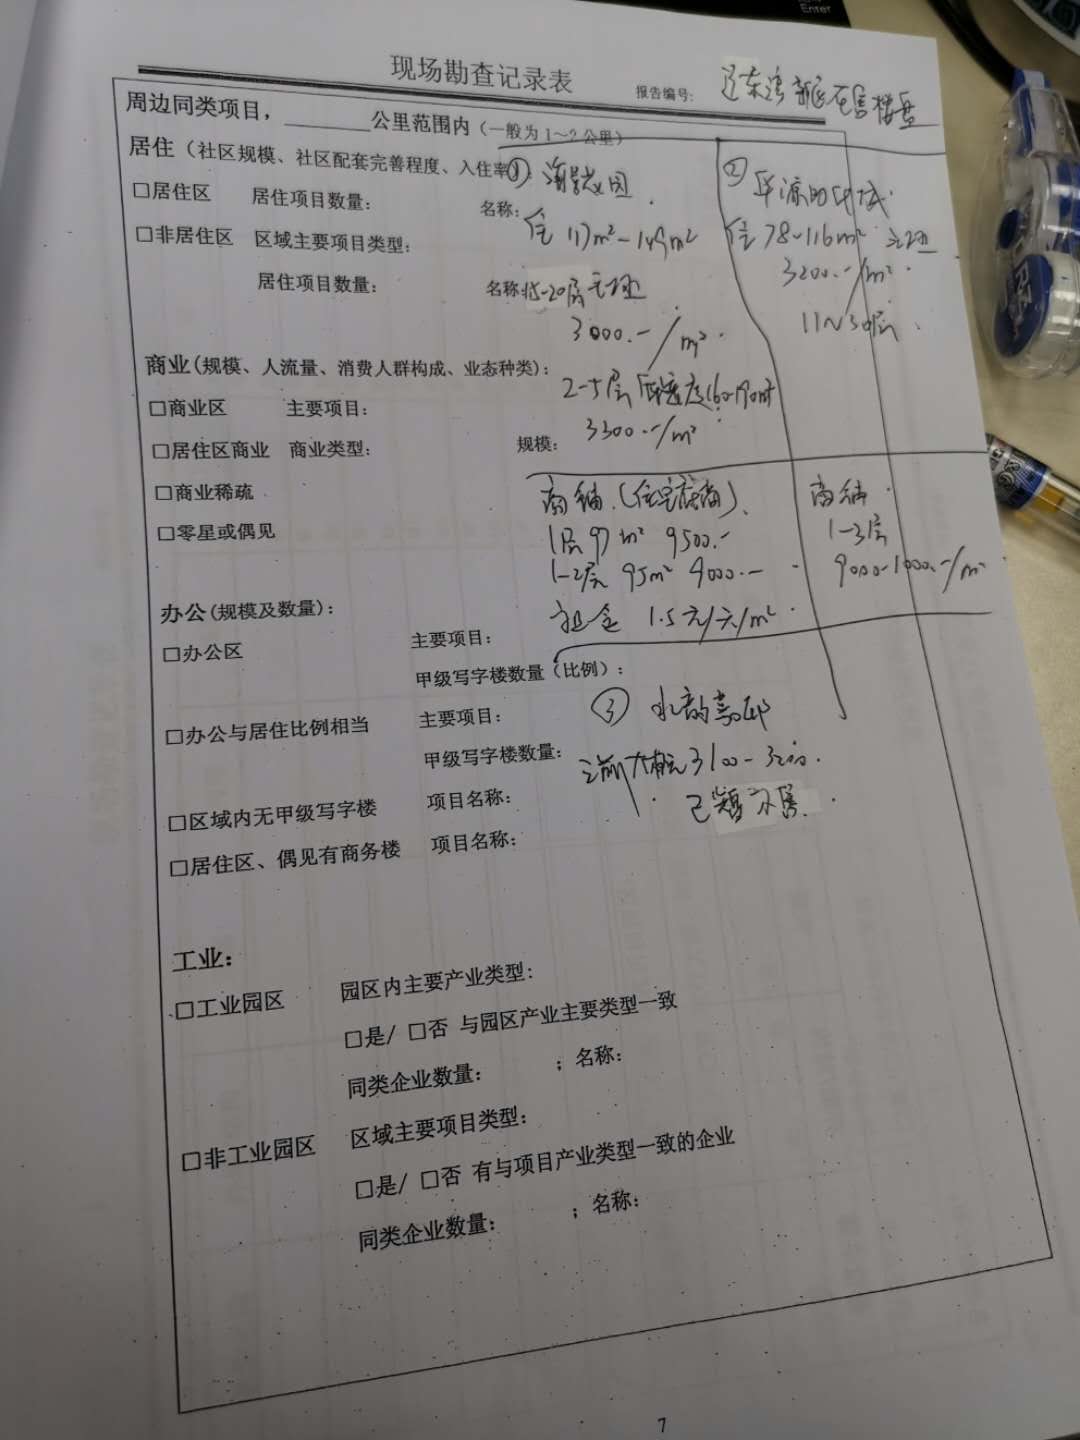 Enter
现场勘查记录表
报告编号:
辽东湾新区在售楼盘
周边同类项目，______公里范围内（一般为1～2公里）
居住（社区规模、社区配套完善程度、入住率）：
① 园
② 城
□居住区 居住项目数量： 名称：
住 117m²-149m²
住 78-116m²
□非居住区 区域主要项目类型：
3200.-/m²
居住项目数量： 名称：
15-20层
11~30层
3000.-/m²
商业(规模、人流量、消费人群构成、业态种类)：
2-5层 低密度160-190m²
□商业区 主要项目：
3300.-/m²
□居住区商业 商业类型： 规模：
□商业稀疏
商铺.(住宅底商)
商铺.
□零星或偶见
1层 97m² 9500.-
1-3层
1-2层 95m² 9000.-
9000-10000.-/m²
办公(规模及数量)：
租金 1.5元/天/m²
□办公区 主要项目：
甲级写字楼数量（比例）：
③ 水韵
□办公与居住比例相当 主要项目：
甲级写字楼数量：
之前大概 3100-3200.
已 不售.
□区域内无甲级写字楼 项目名称：
□居住区、偶见有商务楼 项目名称：
工业：
□工业园区 园区内主要产业类型：
□是/ □否 与园区产业主要类型一致
同类企业数量： ；名称：
□非工业园区 区域主要项目类型：
□是/ □否 有与项目产业类型一致的企业
同类企业数量： ；名称：
7